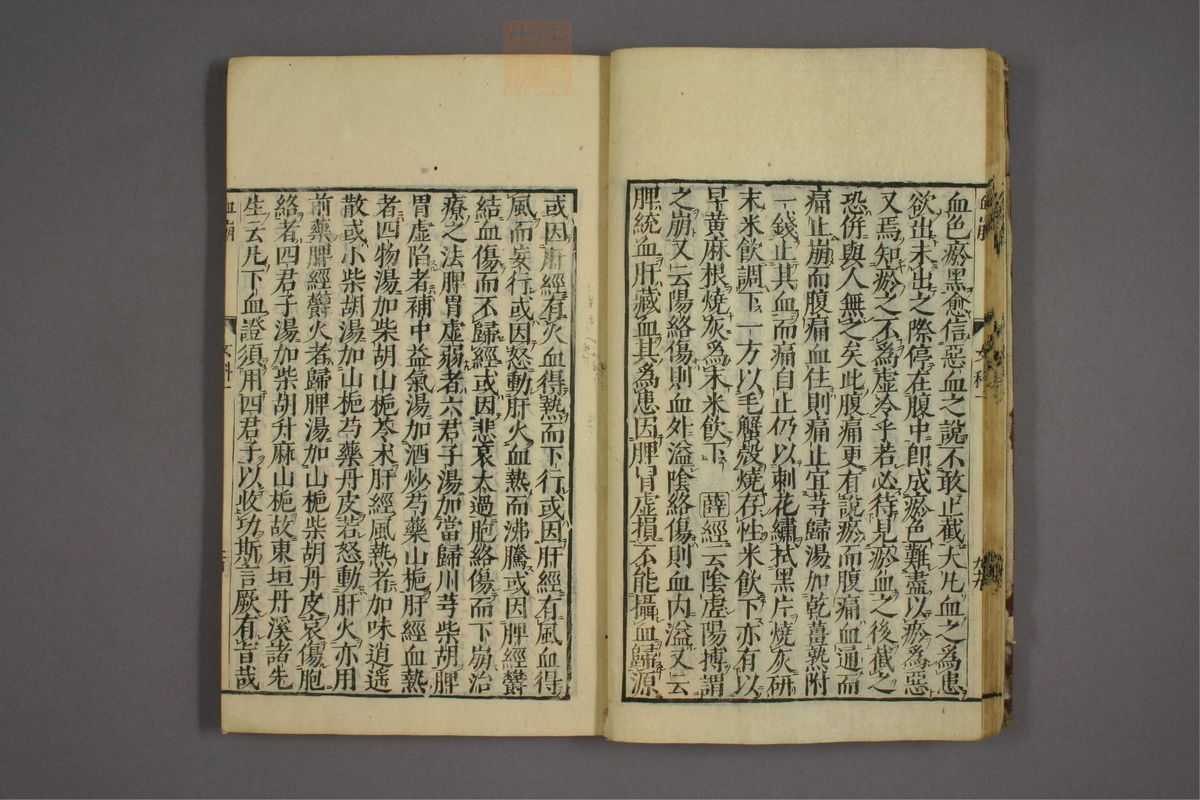 血色瘀黑愈信惡血之說不敢止截大凡血之爲患
欲出未出之際停在腹中即成瘀色難盡以瘀爲惡
又焉知瘀之不爲虛冷乎若必待見瘀血之後截之
恐併與人無之矣此腹痛更有說瘀而腹痛血通而
痛止崩而腹痛血住則痛止宜芎歸湯加乾薑熟附
一錢止其血而痛自止仍以刺花繡拭黑片燒灰研
末米飲調下一方以毛蟹殼燒存性米飲下亦有以
旱黃麻根燒灰爲末米飲下 薛經云陰虛陽搏謂
之崩又云陽絡傷則血外溢陰絡傷則血內溢又云
脾統血肝藏血其爲患因脾胃虛損不能攝血歸源
或因肝經有火血得熱而下行或因肝經有風血得
風而妄行或因怒動肝火血熱而沸騰或因脾經鬱
結血傷而不歸經或因悲哀太過胞絡傷而下崩治
療之法脾胃虛弱者六君子湯加當歸川芎柴胡脾
胃虛陷者補中益氣湯加酒炒芍藥山梔肝經血熱
者四物湯加柴胡山梔苓朮肝經風熱者加味逍遙
散或小柴胡湯加山梔芍藥丹皮若怒動肝火亦用
前藥脾經鬱火者歸脾湯加山梔柴胡丹皮哀傷胞
絡者四君子湯加柴胡升麻山梔故東垣丹溪諸先
生云凡下血證須用四君子以收功斯言厥有旨哉
血崩
女科一